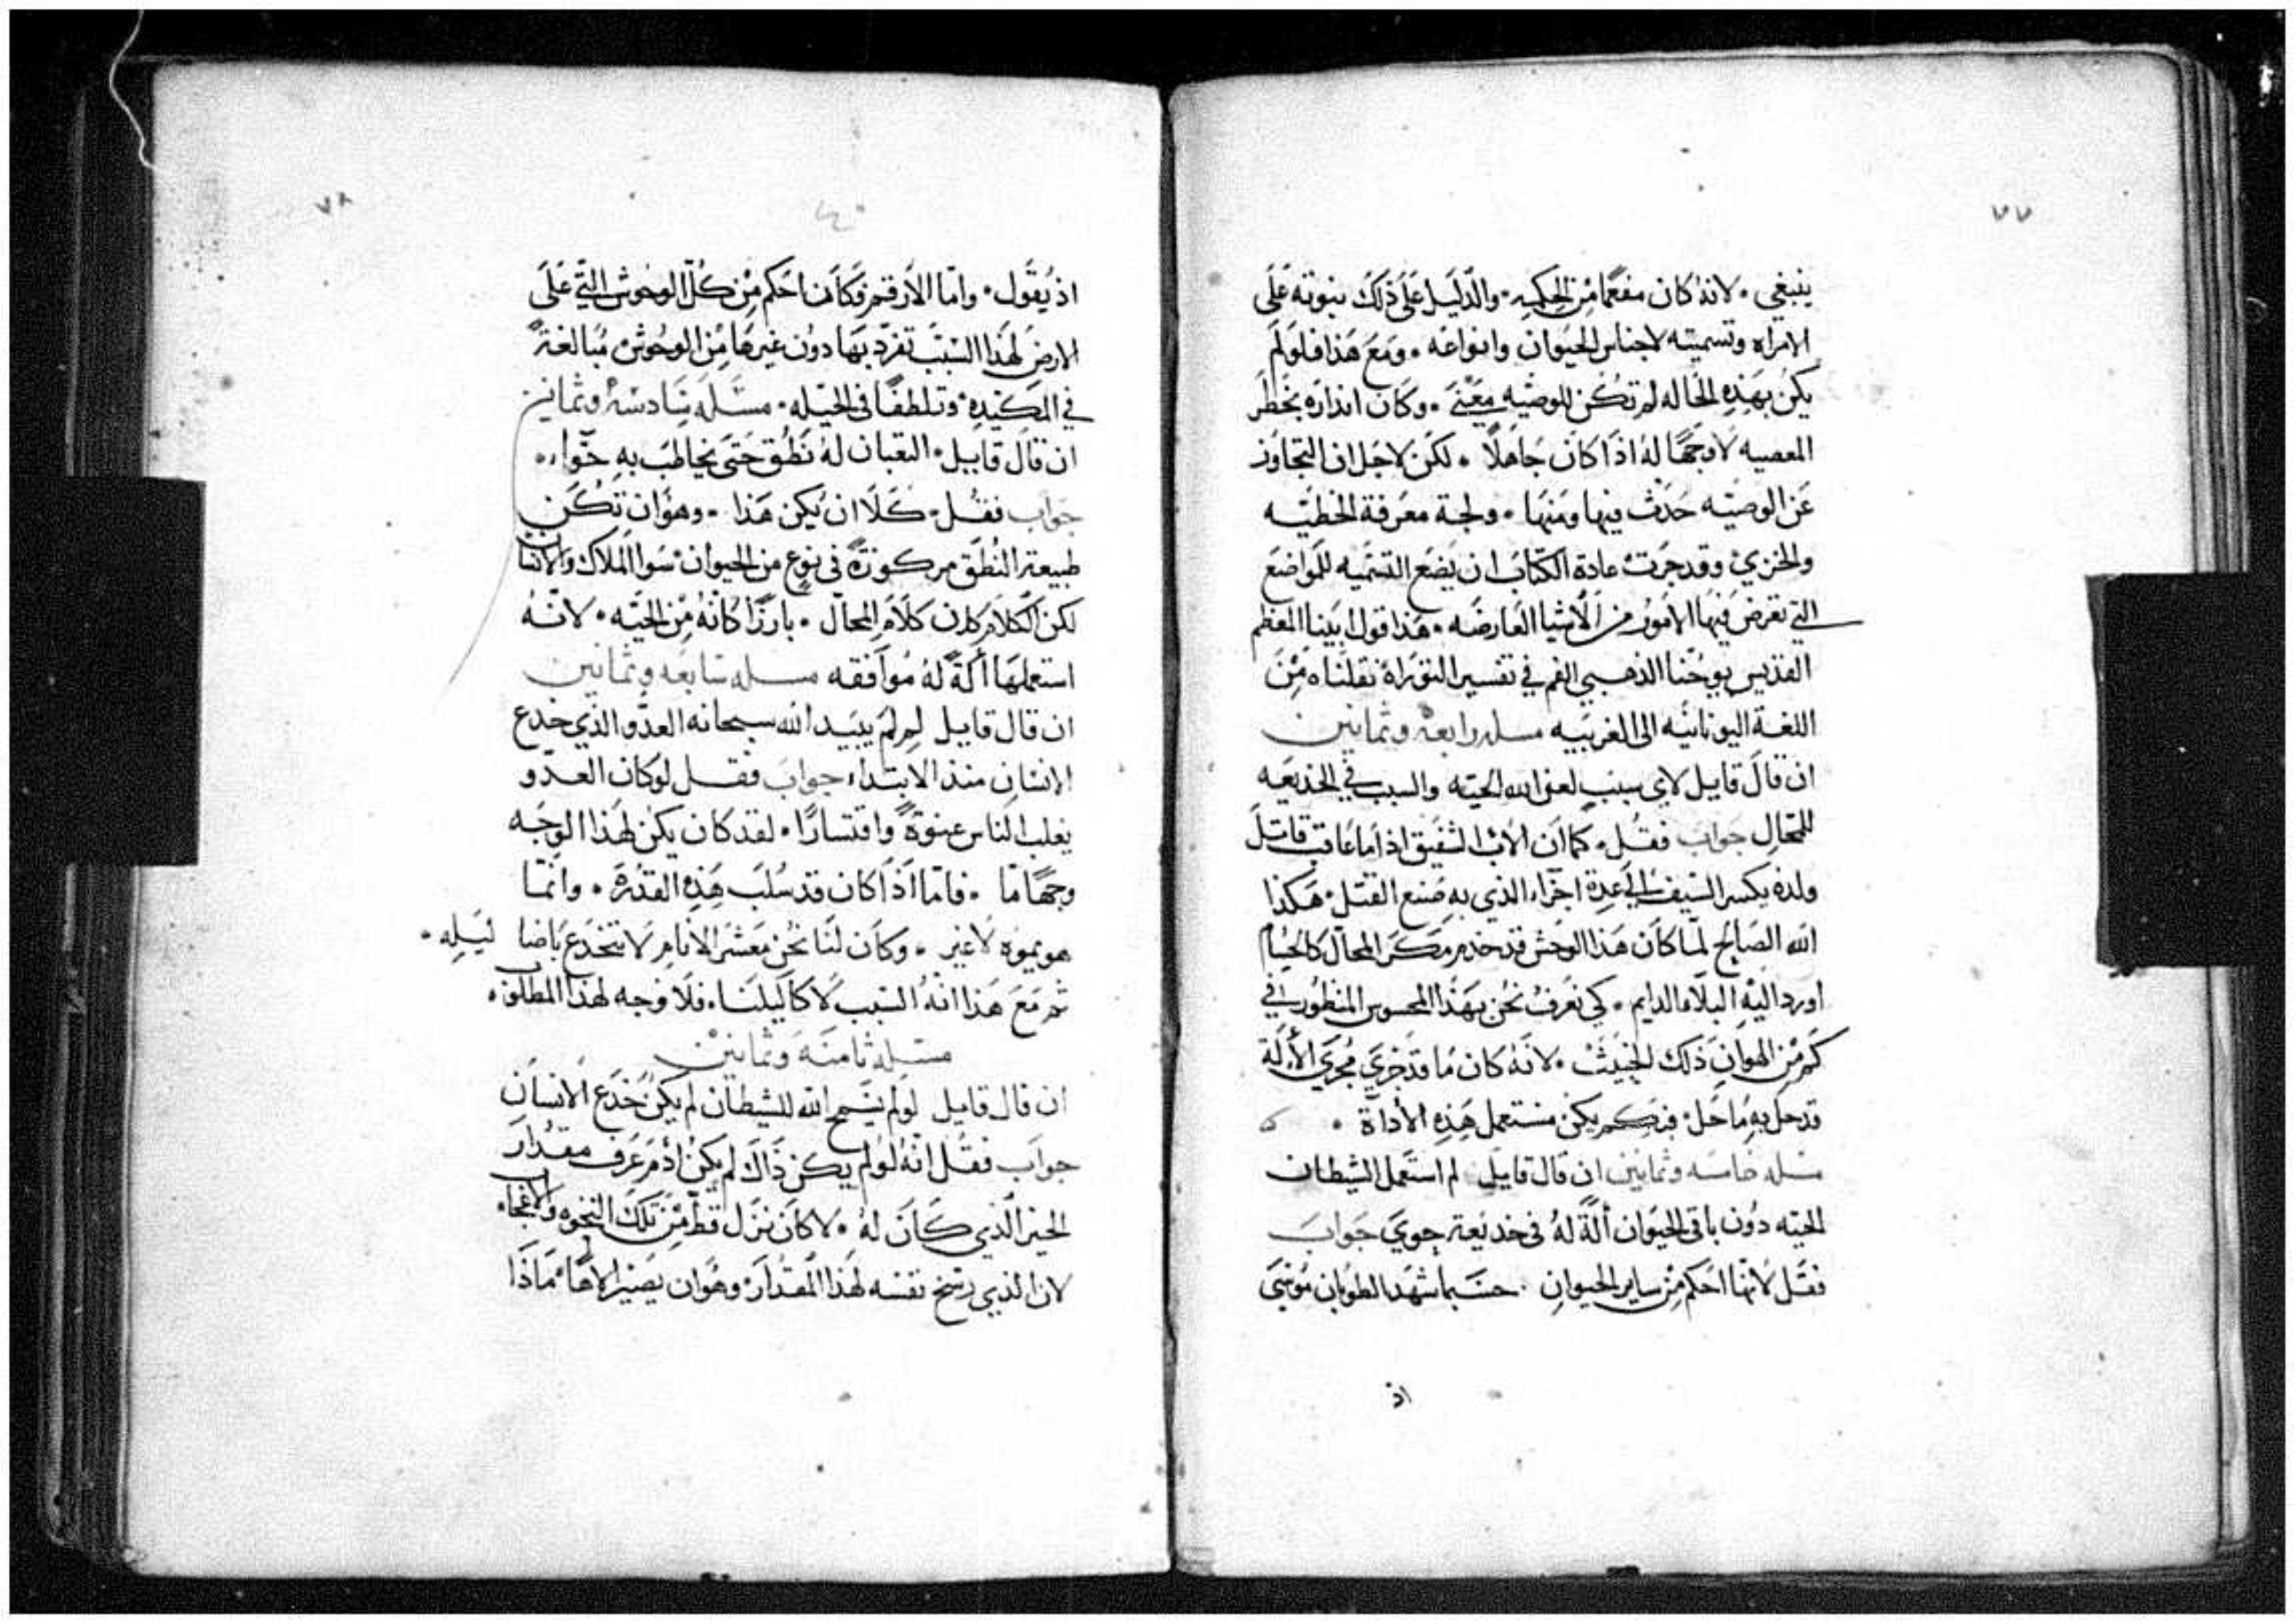 ٧٧
ينبغي · لانه كان مفعمًا من الحكمه · والدليل على ذلك نبوته على
الامراه وتسميته لاجناس الحيوان وانواعه · ومع هذا فلو لم
يكن بهذه الحاله لم تكن للوصيه معنى · وكان انذاره بخطر
المعصيه لا وجهًا له اذا كان جاهلًا · لكن لاجل ان التجاوز
عن الوصيه حدث فيها ومنها · ولجة معرفة الخطيه
والخزي وقد جرت عادة الكتاب ان يضع التسميه للمواضع
التي تعرض فيها الامور من الاشيا العارضه · هذا قول ابينا المعظم
القديس يوحنا الذهبي الفم في تفسير التوراة نقلناه من
اللغة اليونانيه الى العربيه مسله رابعه وثمانين
ان قال قايل لاي سبب لعن الله الحيه والسبب في الخديعه
للمحال جواب فقل · كما ان الاب الشفيق اذا ما عاقب قاتل
ولده يكسر السيف الى عدة اجزاء الذي به صنع القتل · هكذا
الله الصالح لما كان هذا الوحش قد خدم مكر المحال كالحسام
اورد اليه البلاء الدايم · كي نعرف نحن بهذا المحسوس المنظور في
كم من الهوان ذلك الخبيث · لانه كان ما قد جري مجرى الألة
قد حل به ما حل · فبكم يكن مستعمل هذه الأداة ·
مسله خامسه وثمانين ان قال قايل لم استعمل الشيطان
الحيه دون باقي الحيوان ألة له في خديعة حوى جواب
فقل لانها احكم من ساير الحيوان · حسبما شهد الطوبان موسى
اذ
٧٨
اذ يقول · واما الارقم فكان احكم من كل الوحوش التي على
الارض لهذا السبب تفرد بها دون غيرها من الوحوش مبالغة
في المكيده وتلطفًا في الحيله · مسله سادسه وثمانين
ان قال قايل · التعبان له نطق حتى يخاطب به حواء ·
جواب فقل · كلا ان يكن هذا · وهو ان تكن
طبيعة النطق مركوزة في نوع من الحيوان سوا الملاك والانسان
لكن الكلام كان كلام المحال · بارزًا كانه من الحيه · لانه
استعملها ألة له موافقه مسله سابعه وثمانين
ان قال قايل لم لم يبيد الله سبحانه العدو الذي خدع
الانسان منذ الابتداء جواب فقل لو كان العدو
يغلب الناس عنوةً واقتسارًا · لقد كان يكن لهذا الوجه
وجهًا ما · فاما اذا كان قد سلب هذه القدرة · وانما
هو يموه لا غير · وكان لنا نحن معشر الانام لا ننخدع باضاليله ·
ثم مع هذا انه السبب لاكاليلنا · فلا وجه لهذا المطلوب ·
مسله ثامنه وثمانين
ان قال قايل لو لم يسمح الله للشيطان لم يكن خدع الانسان
جواب فقل انه لو لم يكن ذاك لم يكن أدم عرف مقدار
الخير الذي كان له · لا كان نزل قط من تلك النخوه والاعجاب
لان الذي رشح نفسه لهذا المقدار وهو ان يصير الاهًا ماذا